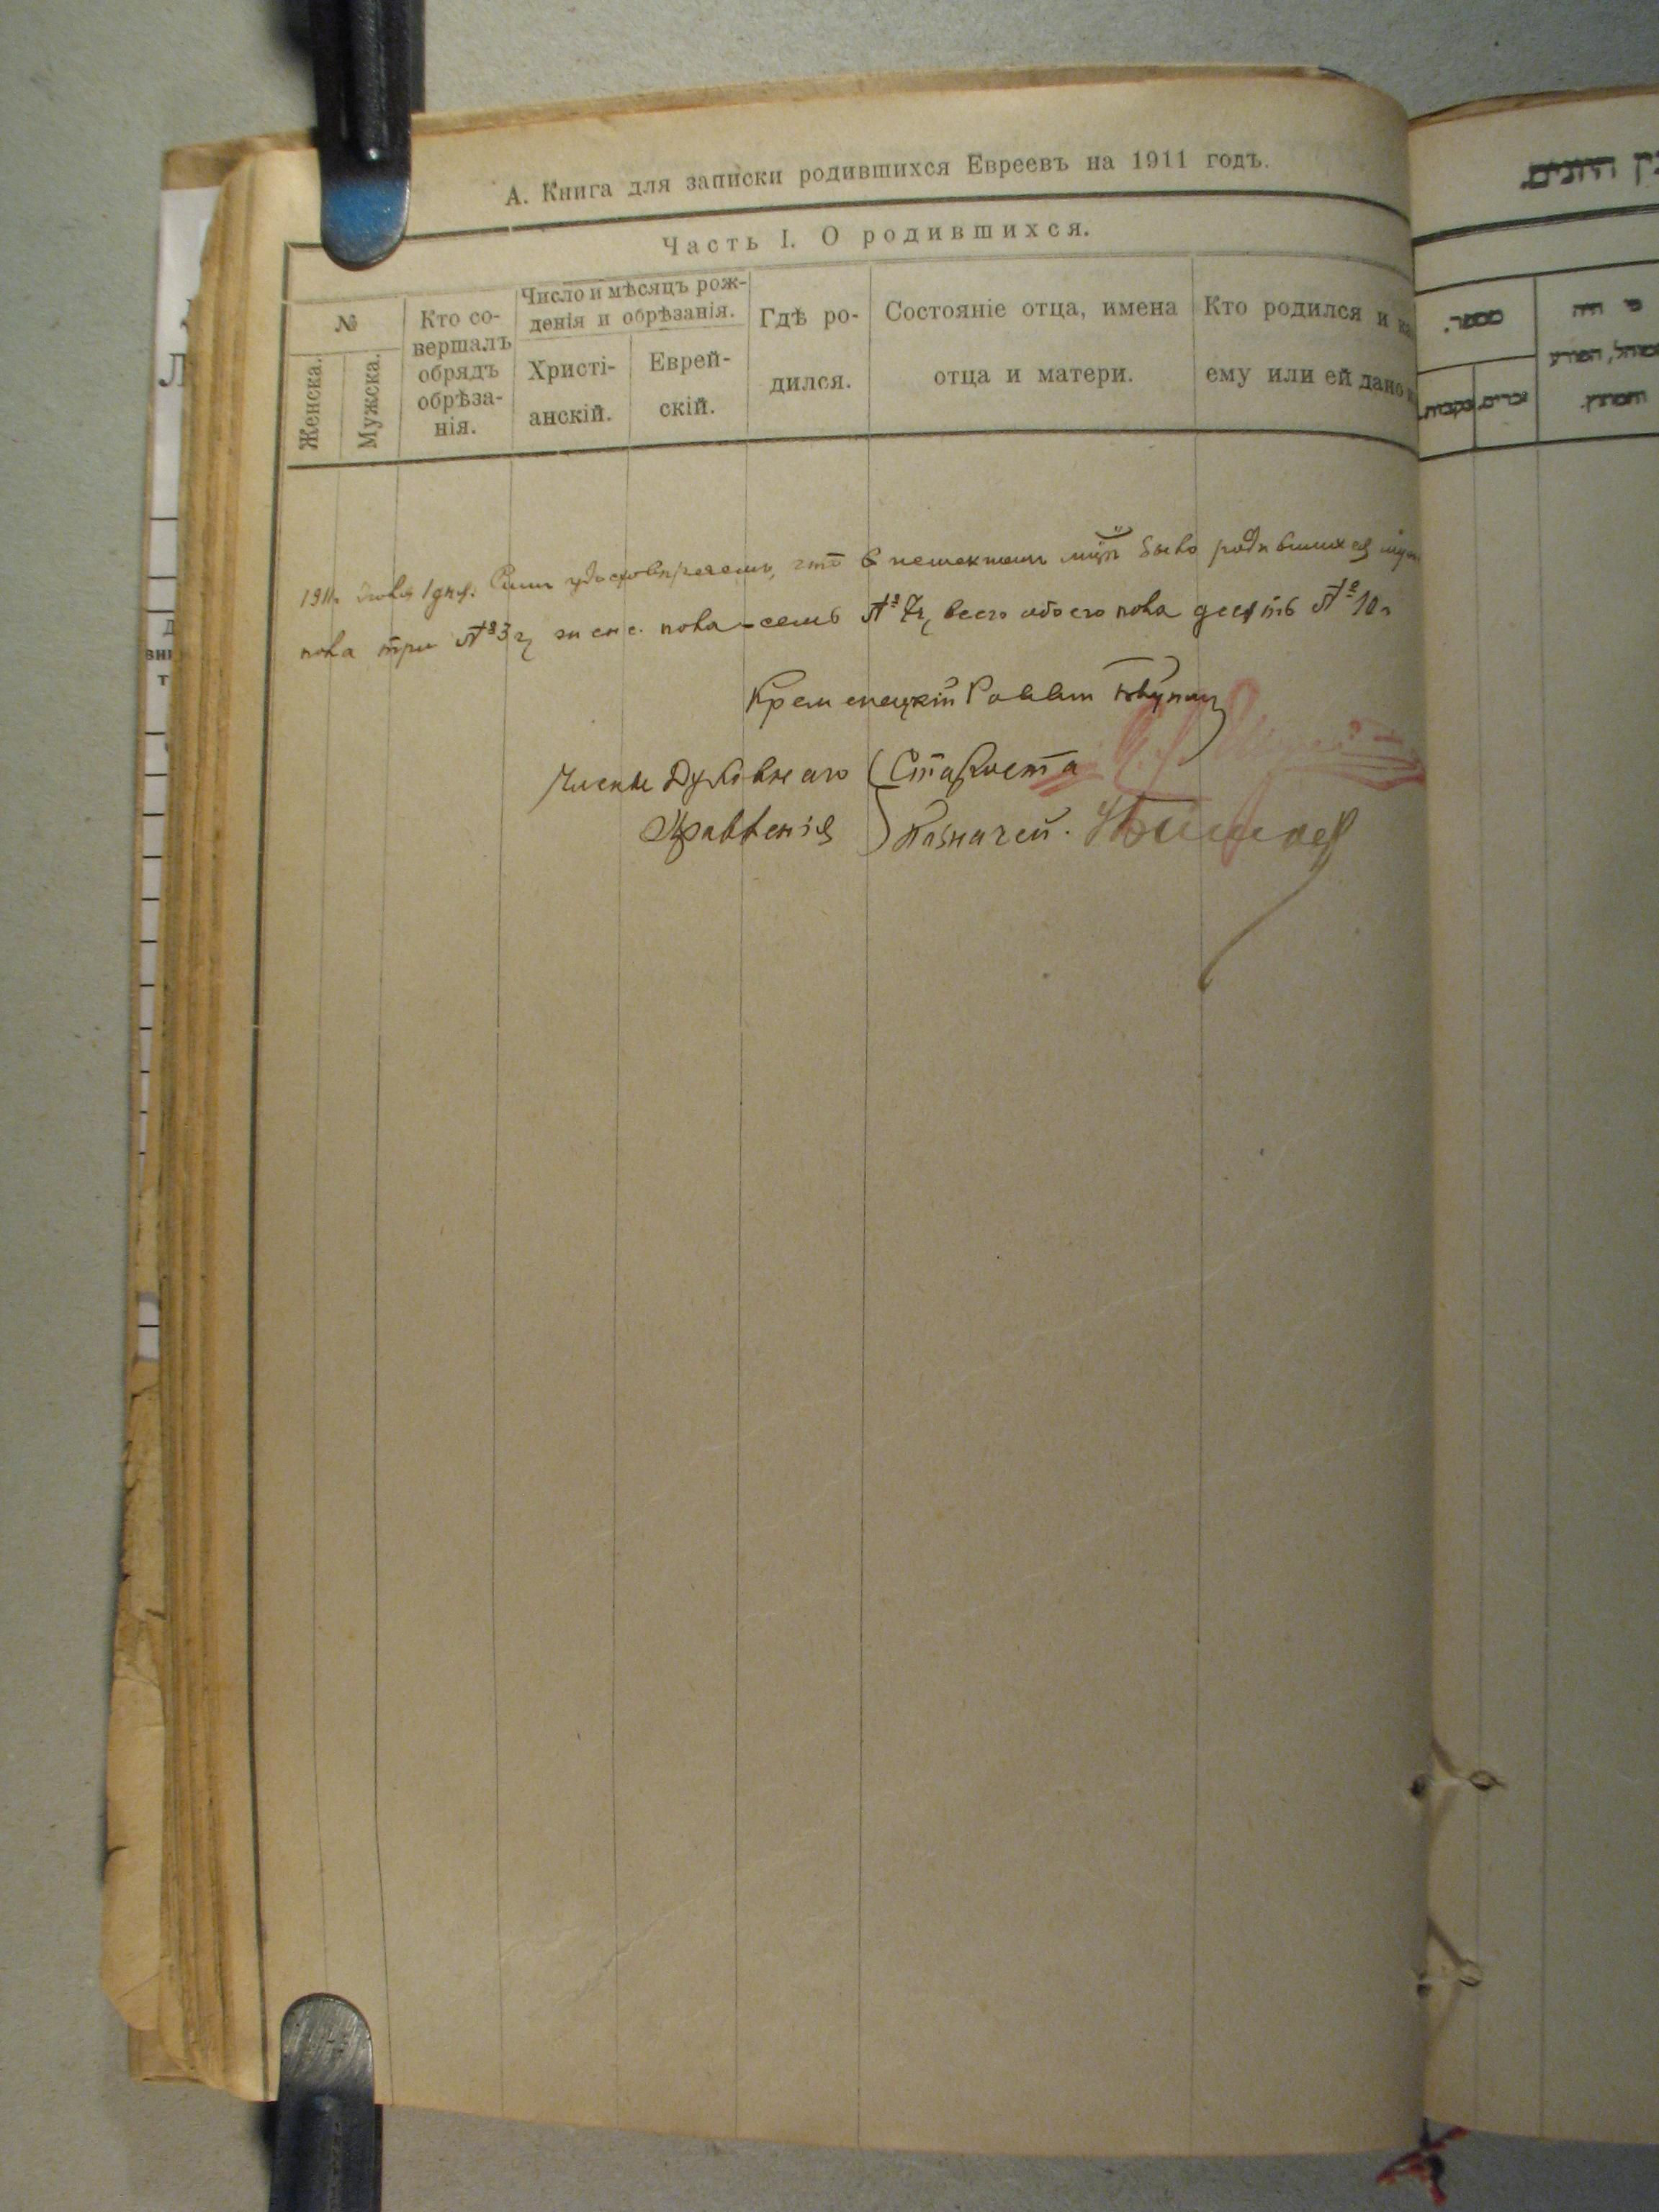 А. Книга для записки родившихся Евреевъ на 1911 годъ.
Часть I. О родившихся.
№
Женска.
Мужска.
Кто со-
вершалъ
обрядъ
обрѣза-
нія.
Число и мѣсяцъ рож-
денія и обрѣзанія.
Христі-
анскій.
Еврей-
скій.
Гдѣ ро-
дился.
Состояніе отца, имена
отца и матери.
Кто родился и
ему или ей дано
1911 г. 1 дня. Симъ удостовѣряемъ, что въ было родившихся муж.
пола три №3 женс. пола - семь №7, всего обоего пола десять №10
Кременецкій Раввинъ
Члены Духовнаго
Правленія
Староста
Казначей.
מספר.
נקבות.
זכרים.
מי היה